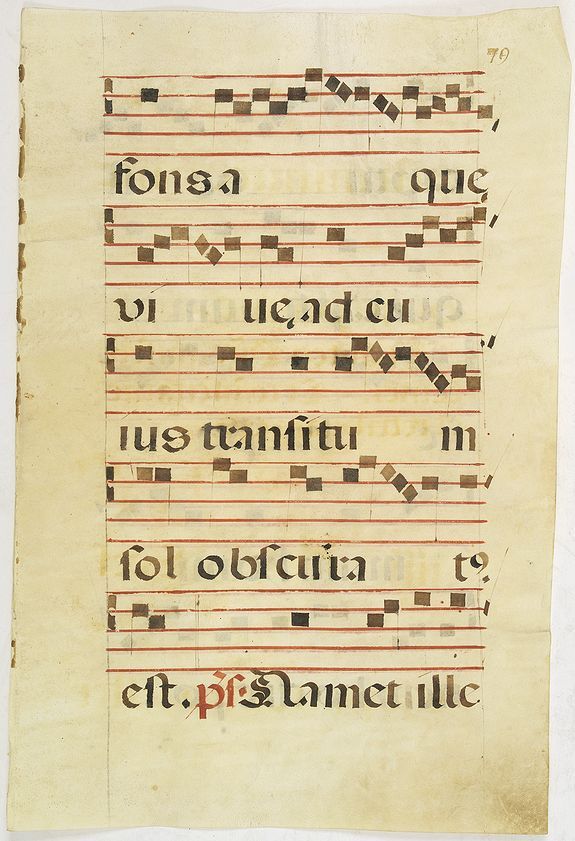 79
fonsa que
vi ue, ad cu
ius transitu m
sol obscura tꝰ
est. ps. Nam et ille